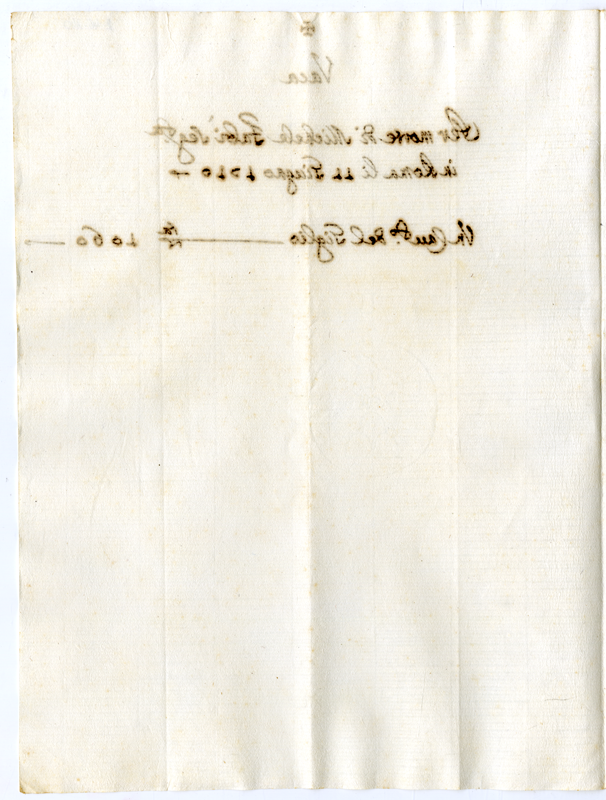 ✠
Vaca
Per morte di Michele Fabi Seg.ta
in Roma li 11 Giugno 1710 —
Un Cau.to del Giglio — 1060 —